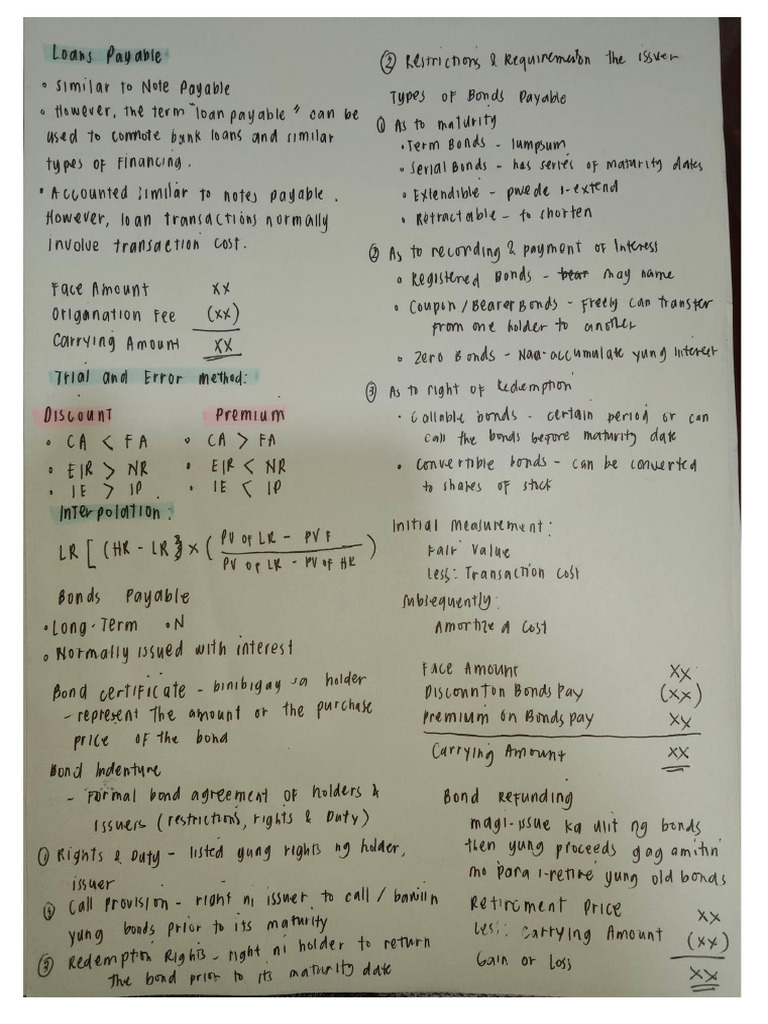 Loans Payable
• Similar to Note Payable
• However, the term "loan payable" can be
used to connote bank loans and similar
types of Financing.
• Accounted similar to notes payable.
However, loan transactions normally
involve transaction cost.
Face Amount xx
Origanation Fee (xx)
Carrying Amount xx
Trial and Error method:
Discount Premium
• CA < FA • CA > FA
• EIR > NR • EIR < NR
• IE > IP • IE < IP
Interpolation:
LR [ (HR - LR } x ( PV of LR - PV F
PV of LR - PV of HR )
Bonds Payable
• Long-Term • N
• Normally issued with interest
Bond certificate - binibigay sa holder
- represent the amount or the purchase
price of the bond
Bond Indenture
- Formal bond agreement of holders &
issuers (restrictions, rights & Duty)
① Rights & Duty - listed yung rights ng holder,
issuer
② Call Provision - right ni issuer to call / bawiin
yung bonds prior to its maturity
③ Redemption Rights - right ni holder to return
the bond prior to its maturity date
② Restrictions & Requirement on the issuer
Types of Bonds Payable
① As to maturity
• Term Bonds - lumpsum
• Serial Bonds - has series of maturity dates
• Extendible - pwede i-extend
• Retractable - to shorten
② As to recording & payment of Interest
• Registered Bonds - may name
• Coupon / Bearer Bonds - Freely can transfer
from one holder to another
• Zero Bonds - Naa-accumulate yung interest
③ As to right of Redemption
• Callable bonds - certain period or can
call the bonds before maturity date
• Convertible bonds - can be converted
to shares of stock
Initial Measurement:
Fair Value
Less: Transaction Cost
Subsequently:
Amortized Cost
Face Amount xx
Discount on Bonds Pay (xx)
Premium on Bonds Pay xx
Carrying Amount xx
Bond Refunding
mag i-issue ka ulit ng bonds
then yung proceeds gagamitin
mo para i-retire yung old bonds
Retirement Price xx
Less: Carrying Amount (xx)
Gain or Loss xx